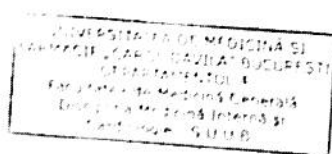 UNIVERSITATEA DE MEDICINĂ ȘI
FARMACIE „CAROL DAVILA" BUCUREȘTI
DEPARTAMENTUL 4
Facultatea de Medicină Generală
Medicină Internă și
Cardiologie S.U.U.B